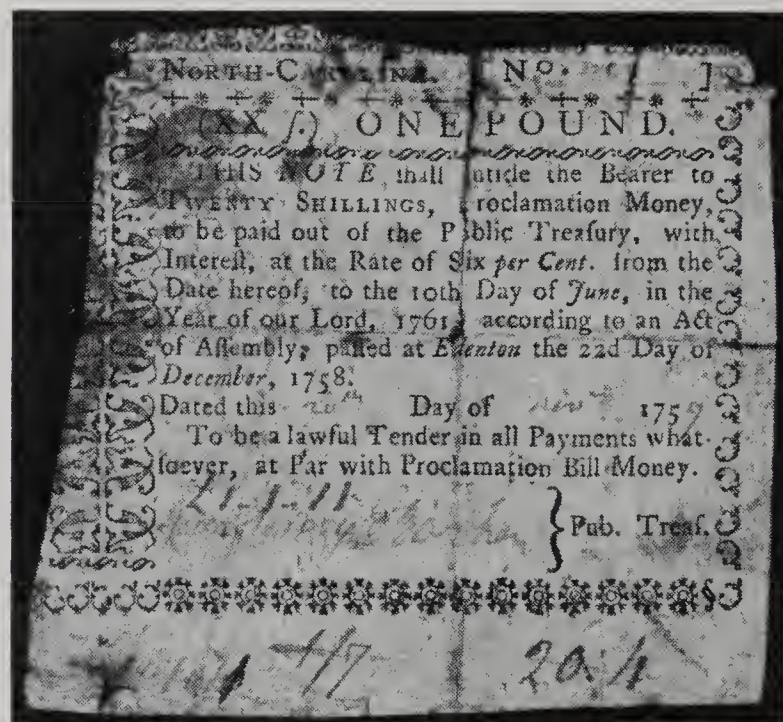 NORTH-CAROLINA. [No. ]
(XX ſ.) ONE POUND.
THIS NOTE, ſhall entitle the Bearer to
TWENTY SHILLINGS, Proclamation Money,
to be paid out of the Public Treaſury, with
Intereſt, at the Rate of Six per Cent. from the
Date hereof, to the 10th Day of June, in the
Year of our Lord, 1761, according to an Act
of Aſſembly, paſſed at Edenton the 22d Day of
December, 1758.
Dated this Day of 1759
To be a lawful Tender in all Payments what-
ſoever, at Par with Proclamation Bill Money.
£1.1.11
} Pub. Treaſ.